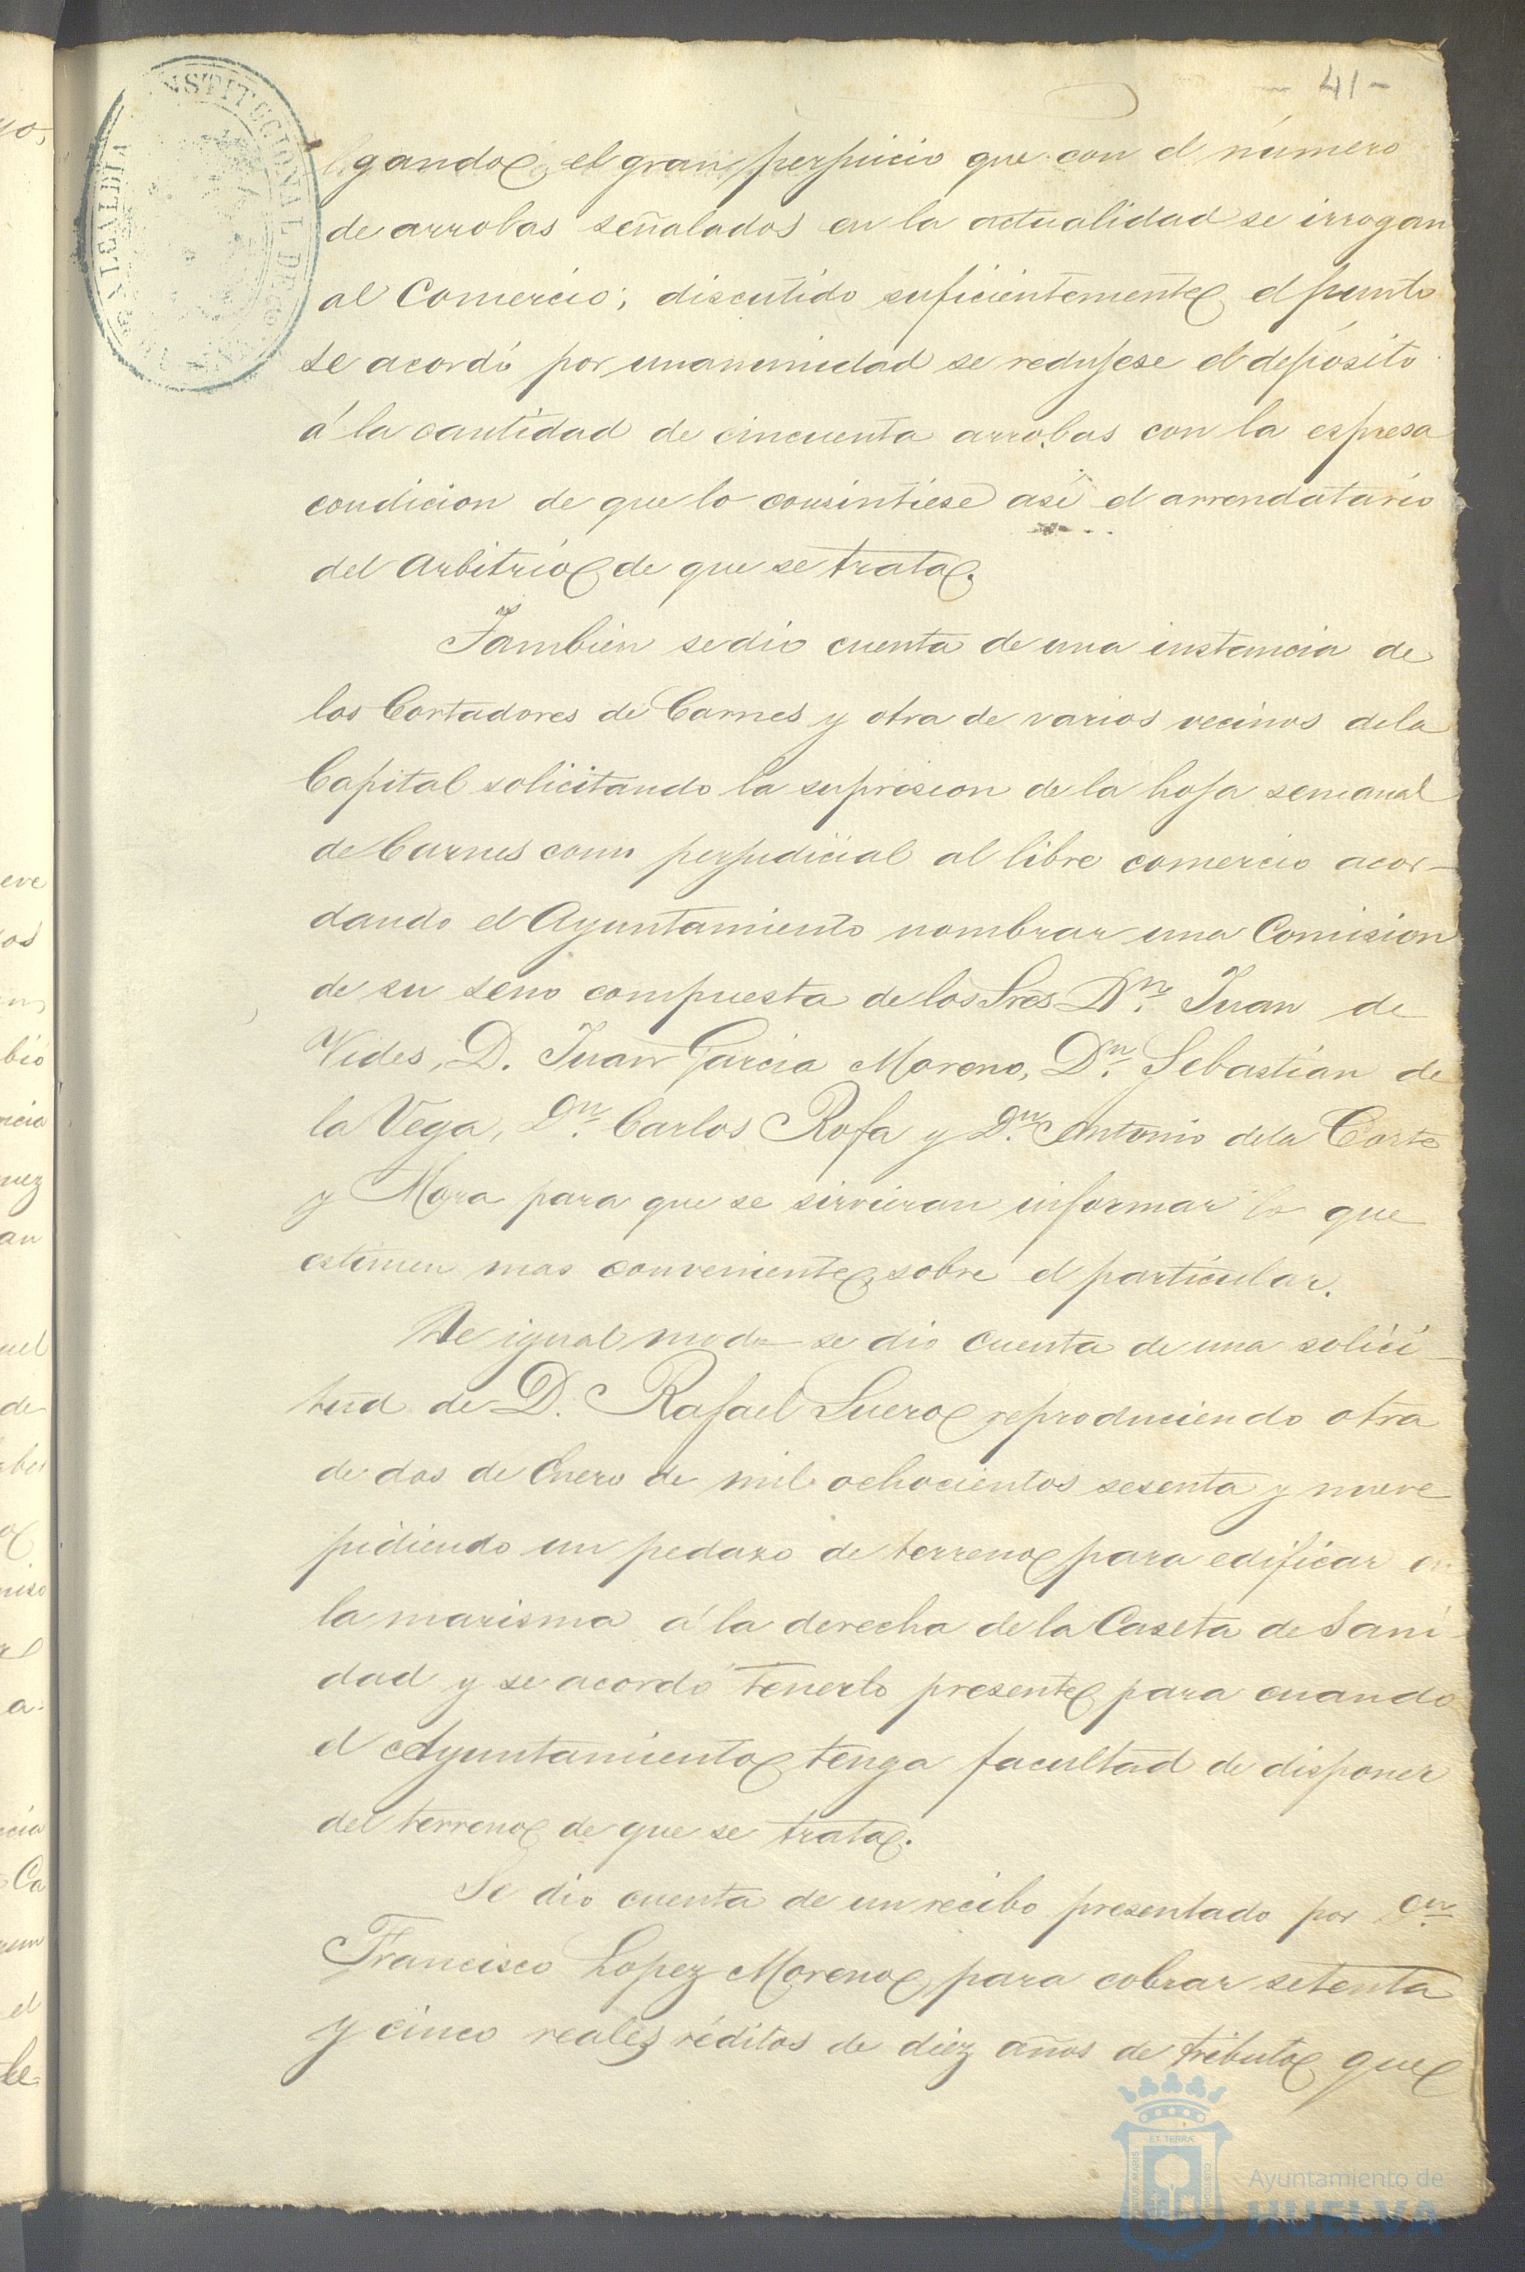 - 41 -
ALCALDIA CONSTITUCIONAL DE
gando el gran perjuicio que con el número
de arrobas señalados en la actualidad se irrogan
al Comercio; discutido suficientemente el punto
se acordó por unanimidad se redujese el depósito
á la cantidad de cincuenta arrobas con la espresa
condicion de que lo consintiese asi el arrendatario
del Arbitrio de que se trata.
Tambien se dió cuenta de una instancia de
los Cortadores de Carnes y otra de varios vecinos de la
Capital solicitando la supresion de la hoja semanal
de Carnes como perjudicial al libre comercio acor-
dando el Ayuntamiento nombrar una Comision
de su seno compuesta de los Sres Dn. Juan de
Vides, D. Juan Garcia Moreno, Dn. Sebastian de
la Vega, Dn. Carlos Rofa y Dn. Antonio de la Corte
y Mora para que se sirvieran informar lo que
estimen mas conveniente sobre el particular.
De igual modo se dio cuenta de una solici-
tud de D. Rafael Suero reproduciendo otra
de dos de Enero de mil ochocientos sesenta y nueve
pidiendo un pedazo de terreno para edificar en
la marisma á la derecha de la Caseta de Sani-
dad y se acordó tenerlo presente para cuando
el Ayuntamiento tenga facultad de disponer
del terreno de que se trata.
Se dio cuenta de un recibo presentado por Dn.
Francisco Lopez Moreno para cobrar setenta
y cinco reales réditos de diez años de tributo que
Ayuntamiento de
HUELVA